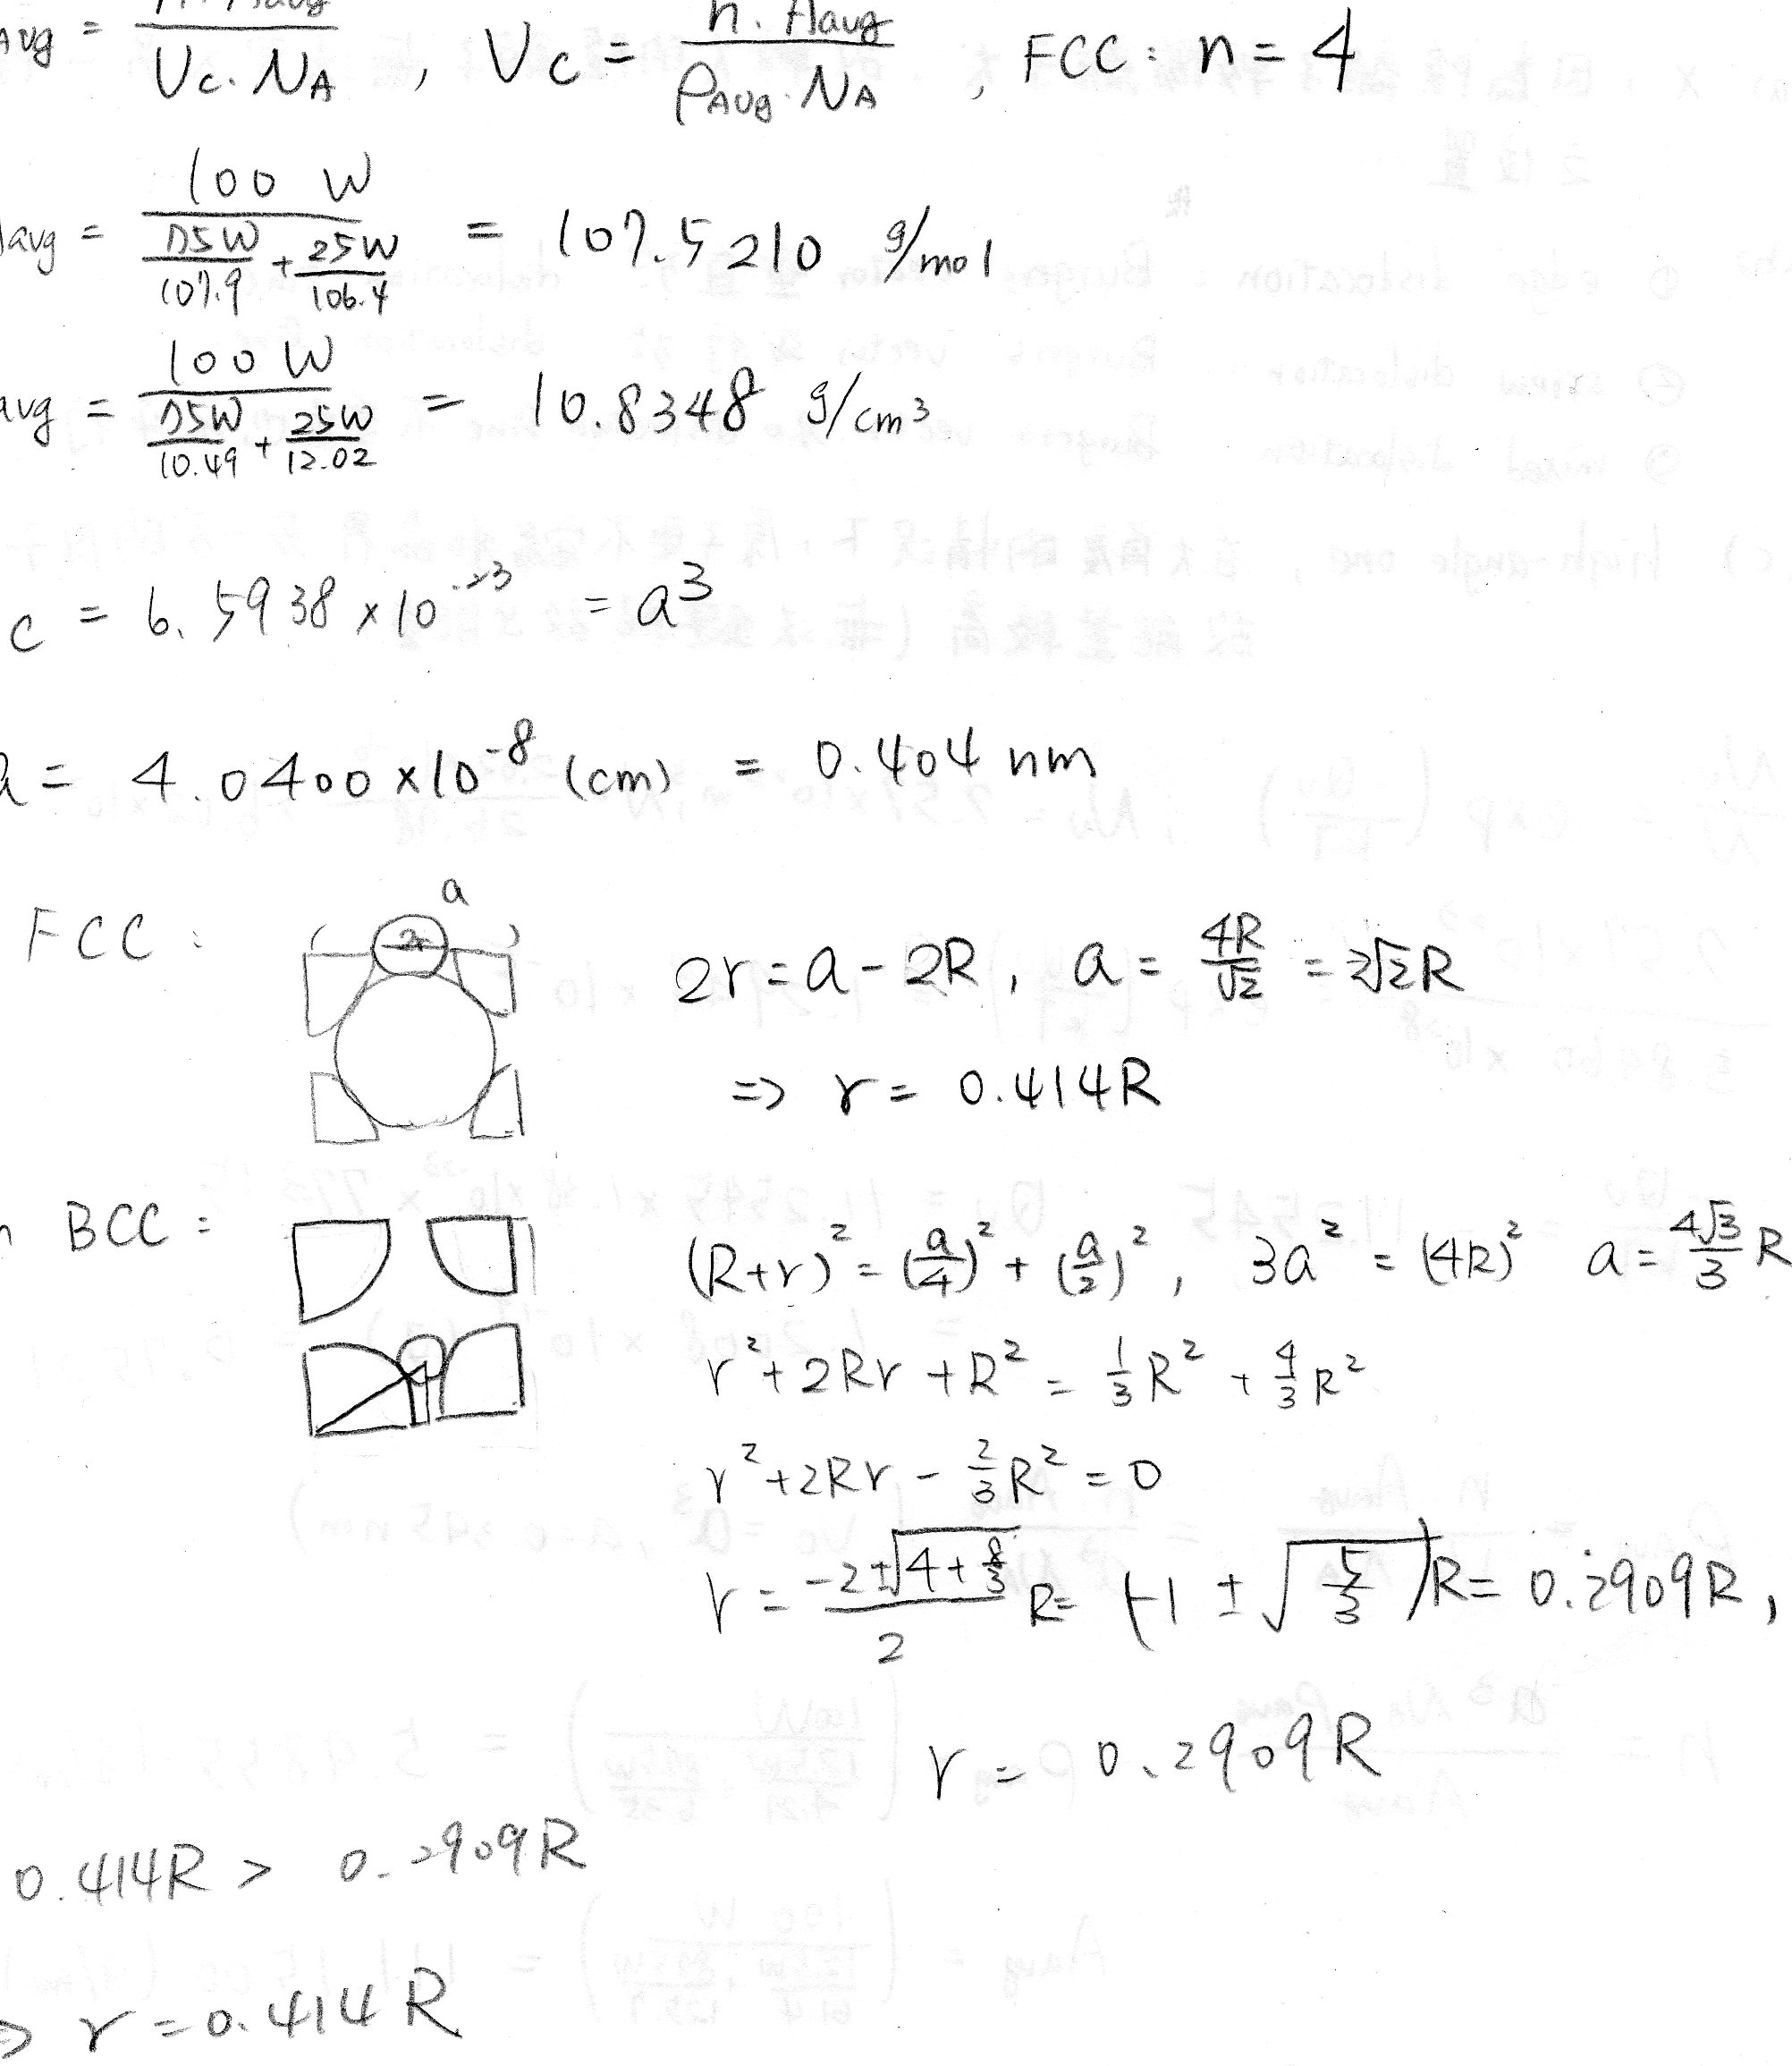 Avg = n. Aavg / Vc. NA , Vc = n. Aavg / ρAvg. NA , FCC: n = 4
avg = 100 W / (75W/107.9 + 25W/106.4) = 107.5210 g/mol
avg = 100 W / (75W/10.49 + 25W/12.02) = 10.8348 g/cm³
c = 6.5938 × 10⁻²³ = a³
a = 4.0400 × 10⁻⁸ (cm) = 0.404 nm
a
FCC: 2r = a - 2R, a = 4R/√2 = 2√2R
=> r = 0.414R
n BCC: (R+r)² = (a/4)² + (a/2)², 3a² = (4R)² a = 4√3/3 R
r² + 2Rr + R² = 1/3 R² + 4/3 R²
r² + 2Rr - 2/3 R² = 0
r = (-2 ± √(4 + 8/3))/2 R = (-1 ± √(5/3))R = 0.2909R,
r = 0.2909R
0.414R > 0.2909R
=> r = 0.414R